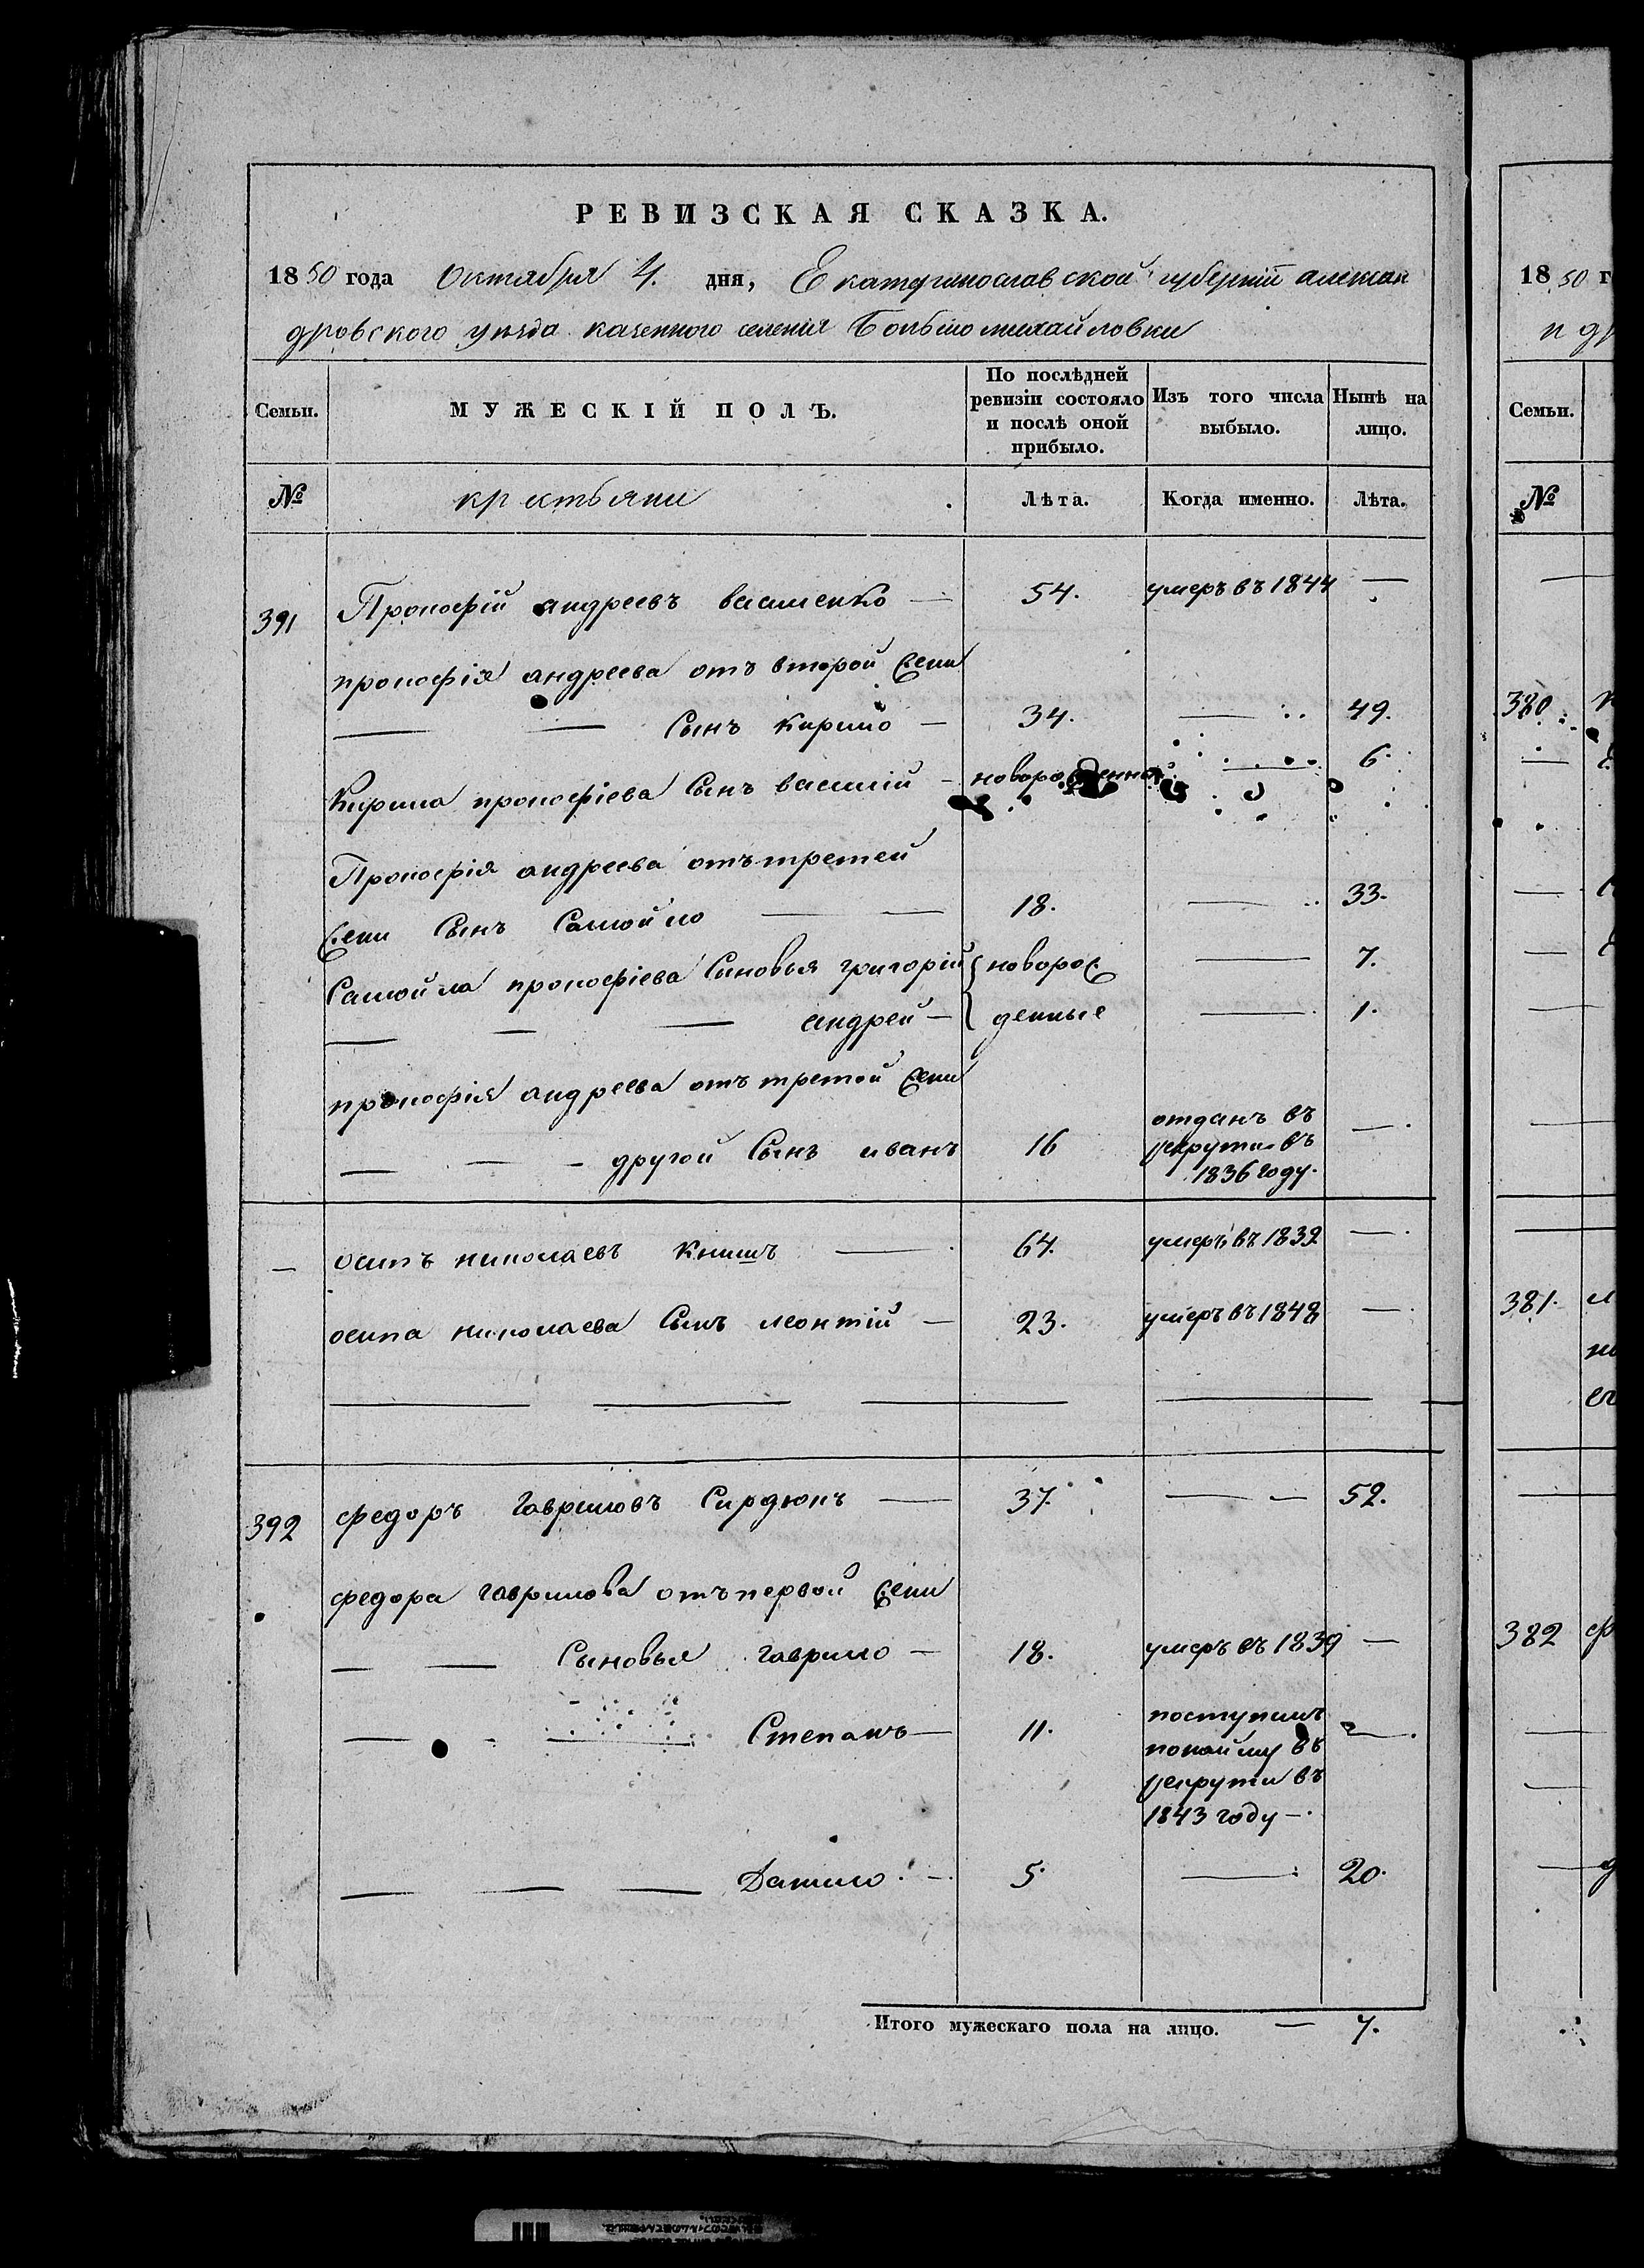 РЕВИЗСКАЯ СКАЗКА.
1850 года Октября 4. дня, Екатеринославской губерніи алексан
дровского уезда казенного селенія Большомихайловки
Семьи. МУЖЕСКІЙ ПОЛЪ. По послѣдней ревизіи состояло и послѣ оной прибыло. Изъ того числа выбыло. Нынѣ на лицо.
№ крестьяни Лѣта. Когда именно. Лѣта.
391 Прокофій андреевъ василенко — 54. умеръ въ 1844 —
прокофія андреева отъ второй жени
— — Сынъ кирило — 34. — 49.
Кирила прокофіева Сынъ василій — новорожденной — 6.
Прокофія андреева отъ третей
жени Сынъ Самойло — — 18. — 33.
Самойла прокофіева Синовья григорій { новорож — 7.
— — — андрей — { денные — 1.
прокофія андреева отъ третой жени
— — — другой Сынъ иванъ 16 отданъ въ —
рекрути въ
1836 году.
— осипъ николаевъ книшъ — 64. умеръ въ 1839 —
осипа николаева Сынъ леонтій — 23. умеръ въ 1848 —
392 федоръ гавриловъ Сирдюкъ — 37. — — 52.
федора гаврилова отъ первой жени
— — Сыновья гаврило — 18. умеръ въ 1839 —
— — Степанъ — 11. поступилъ —
понайму въ
рекрути въ
1843 году —
— — — Данило — 5. — 20.
Итого мужескаго пола на лицо. — 7.
1850 г
Семьи.
№
380
381.
382